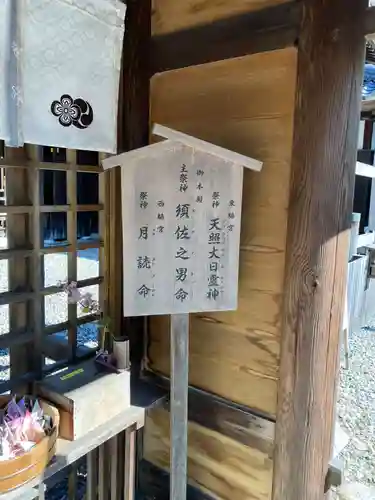 東脇宮
祭神 天照大日孁神
御本殿
主祭神 須佐之男命
西脇宮
祭神 月読命